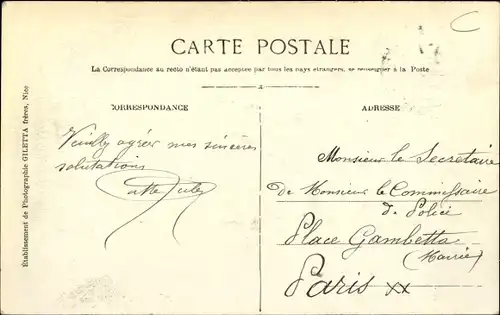 CARTE POSTALE
La Correspondance au recto n'étant pas acceptée par tous les pays étrangers, se renseigner à la Poste
CORRESPONDANCE
ADRESSE
Veuillez agréer mes sincères
salutations
Monsieur le Secrétaire
de Monsieur le Commissaire
de Police
Place Gambetta
(Mairie)
Paris XX
Établissement de Photographie GILETTA frères, Nice
C